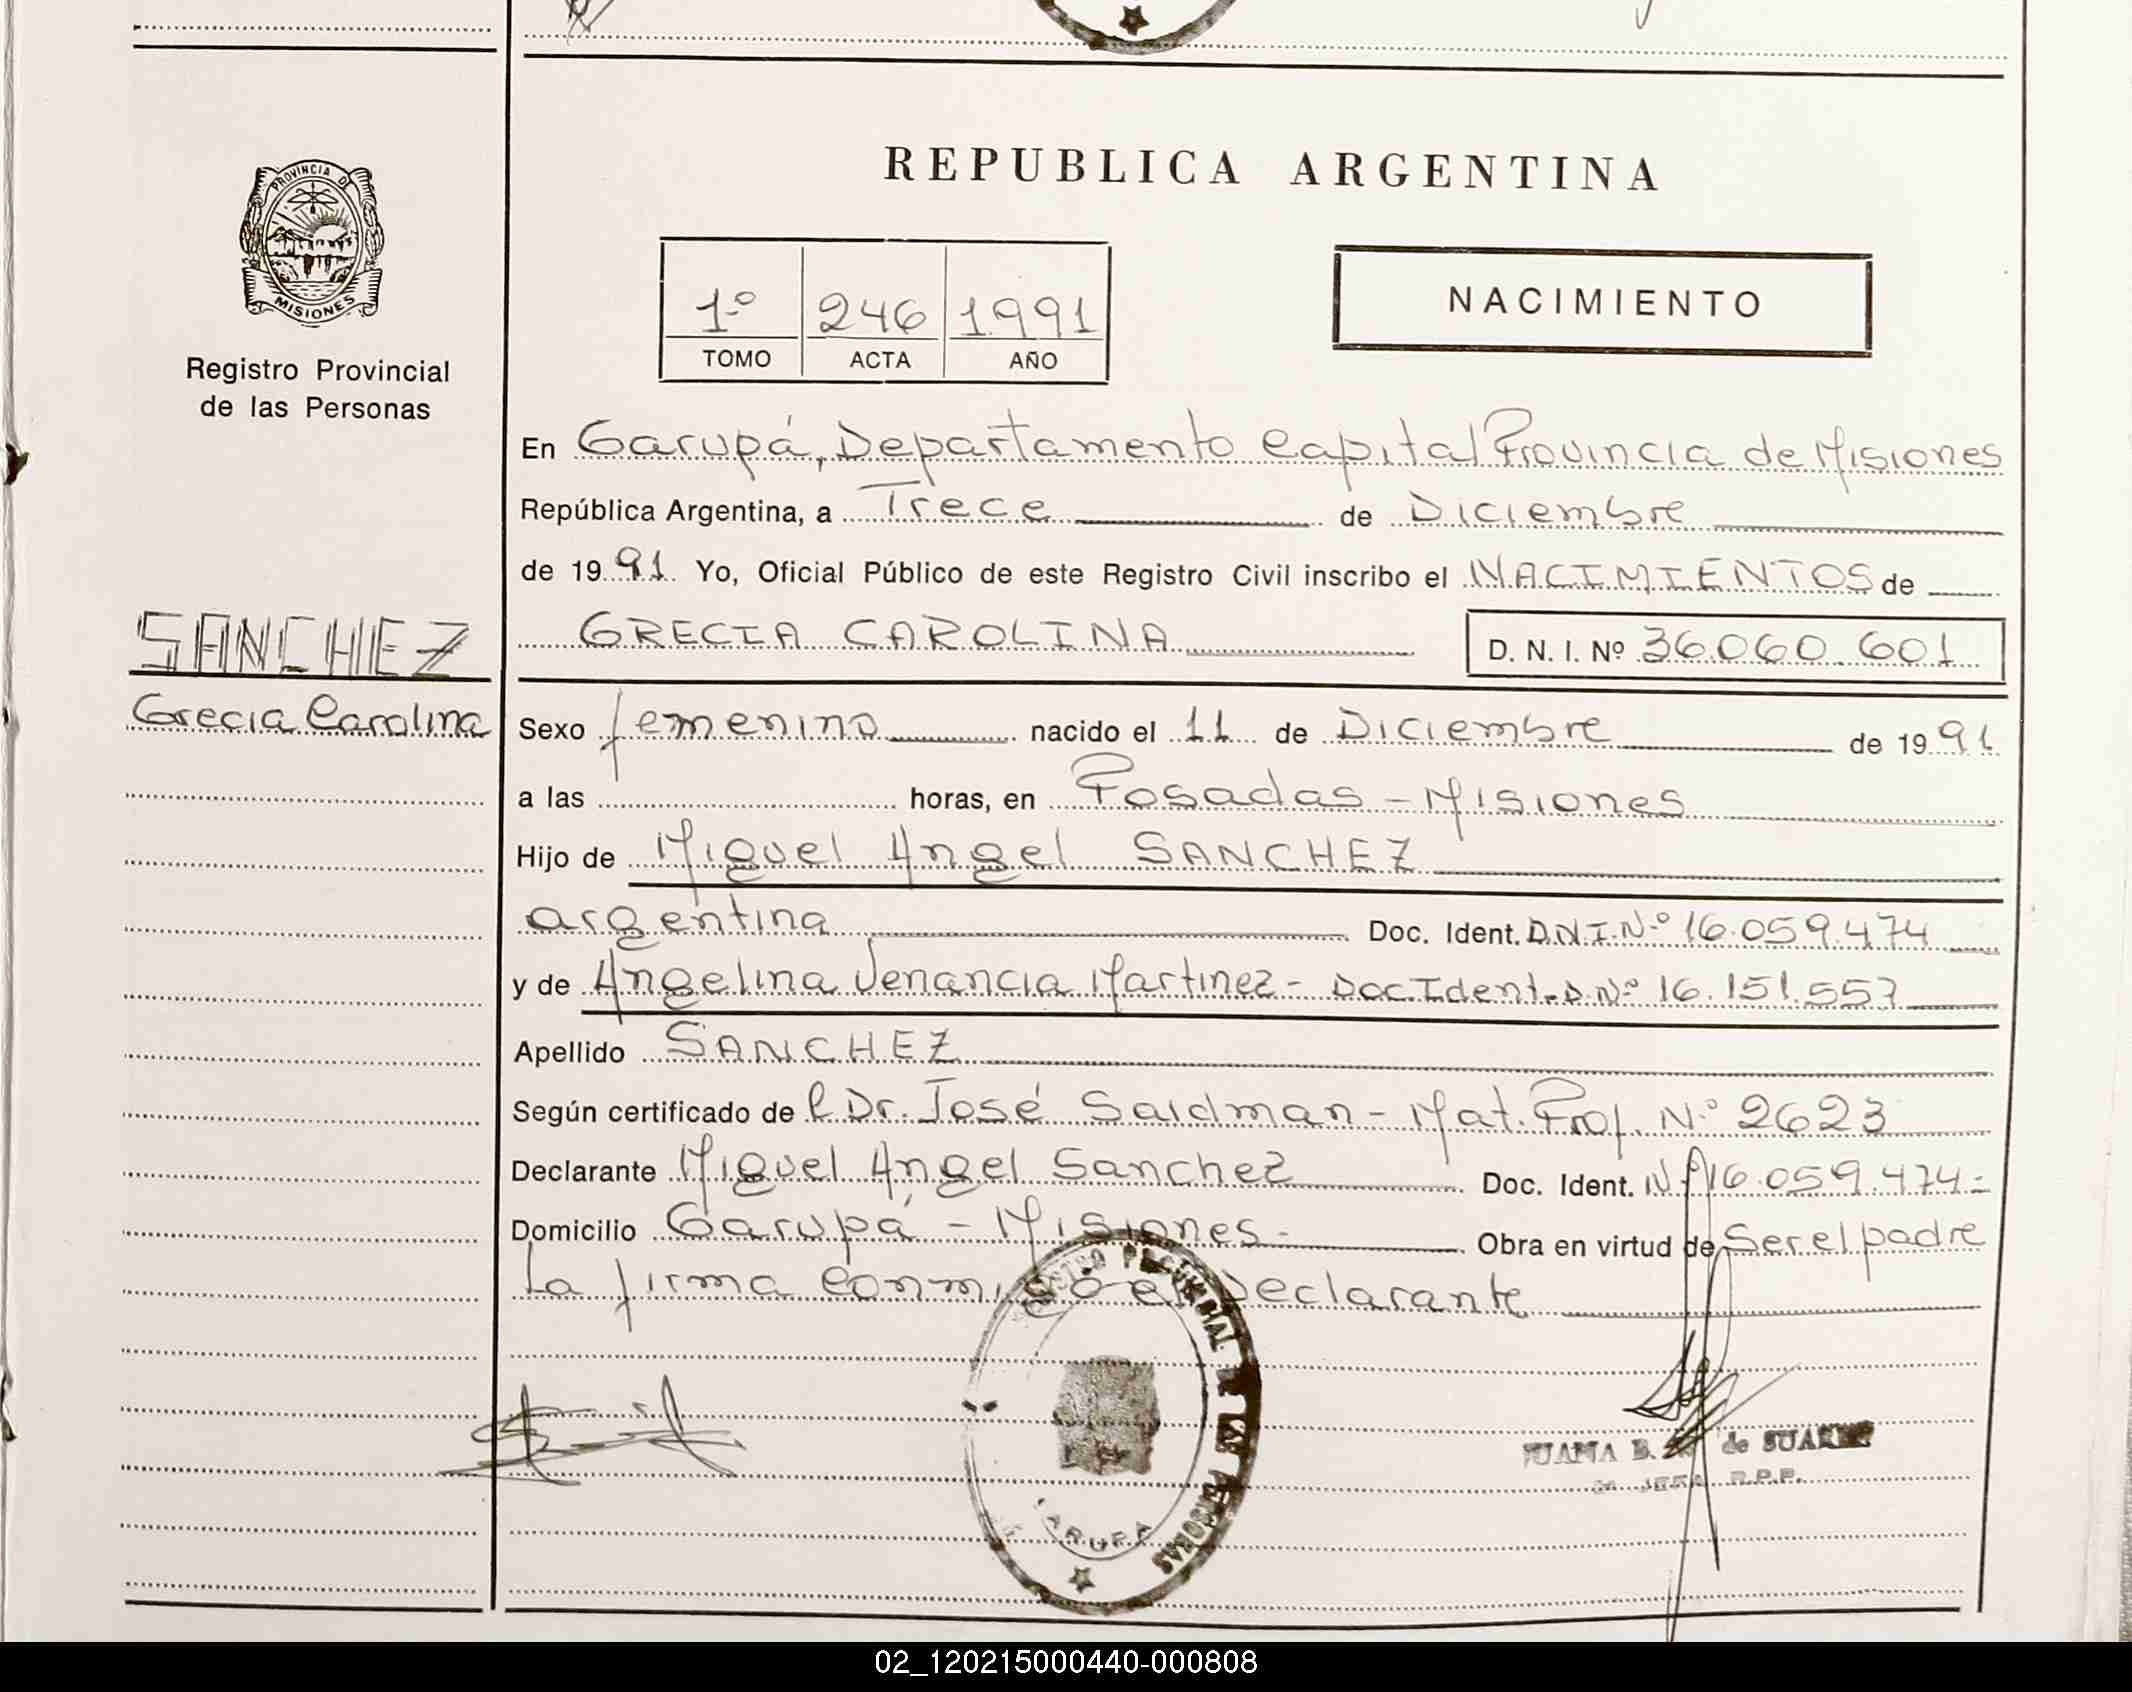 REPUBLICA ARGENTINA
PROVINCIA DE
MISIONES
Registro Provincial
de las Personas
1º 246 1991
TOMO ACTA AÑO
NACIMIENTO
En Garupá, Departamento Capital Provincia de Misiones
República Argentina, a Trece de Diciembre
de 1991 Yo, Oficial Público de este Registro Civil inscribo el NACIMIENTOS de
SANCHEZ
GRECIA CAROLINA D. N. I. Nº 36.060.601
Grecia Carolina
Sexo femenino nacido el 11 de Diciembre de 1991
a las horas, en Posadas - Misiones
Hijo de Miguel Angel SANCHEZ
argentina Doc. Ident. D.N.I.Nº 16.059.474
y de Angelina Venancia Martinez - Doc. Ident. D.Nº 16.151.557
Apellido SANCHEZ
Según certificado de l Dr. José Saidman - Mat. Prof. Nº 2623
Declarante Miguel Angel Sanchez Doc. Ident. Nº 16.059.474=
Domicilio Garupá - Misiones - Obra en virtud de Ser el padre
La firma conmigo el Declarante
PROVINCIAL DE LAS PERSONAS
GARUPA
JUANA B. de SUAREZ
R.P.P.
02_120215000440-000808